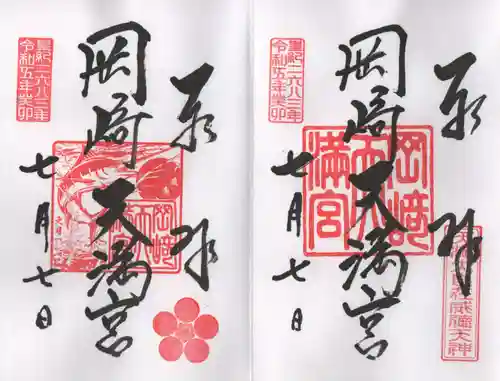 奉拝
岡崎天満宮
七月七日
皇紀二六八三年
令和五年癸卯
岡崎
天満宮
奉拝
岡崎天満宮
七月七日
皇紀二六八三年
令和五年癸卯
岡崎
天満宮